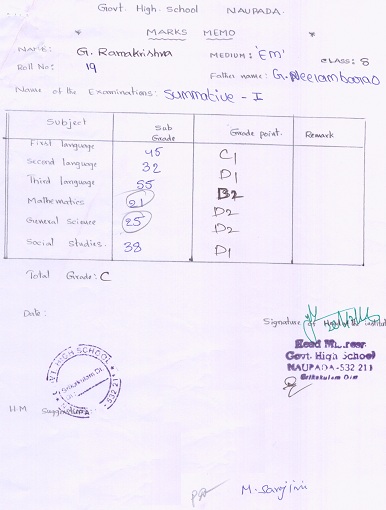 Govt. High. School NAUPADA.
MARKS MEMO
NAME: G. Ramakrishna MEDIUM: 'EM' CLASS: 8
Roll No: 19 Father name: G. Neelambaarao
Name of the Examinations: Summative - I
Subject Sub Grade Grade point. Remark
First language 45 C1
Second language 32 D1
Third language 55 B2
Mathematics 21 D2
General Science 25 D2
Social Studies. 38 D1
Total Grade: C
Date:
Signature of Head of the institut
Head M...reer
Govt. High School
NAUPADA-532 211
Srikakulam Dist
VT HIGH SCHOOL
Srikakulam Dt.
532 211
H.M
M. Sarojini